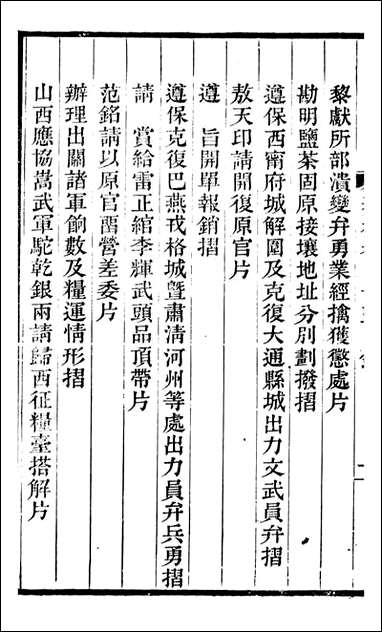 黎獻所部潰變弁勇業經擒獲懲處片
勘明鹽茶固原接壤地址分別劃撥摺
遵保西甯府城解圍及克復大通縣城出力文武員弁摺
敖天印請開復原官片
遵　旨開單報銷摺
遵保克復巴燕戎格城曁肅清河州等處出力員弁兵勇摺
請　賞給雷正綰李輝武頭品頂帶片
范銘請以原官畱營差委片
辦理出關諸軍餉數及糧運情形摺
山西應協嵩武軍駝乾銀兩請歸西征糧臺搭解片